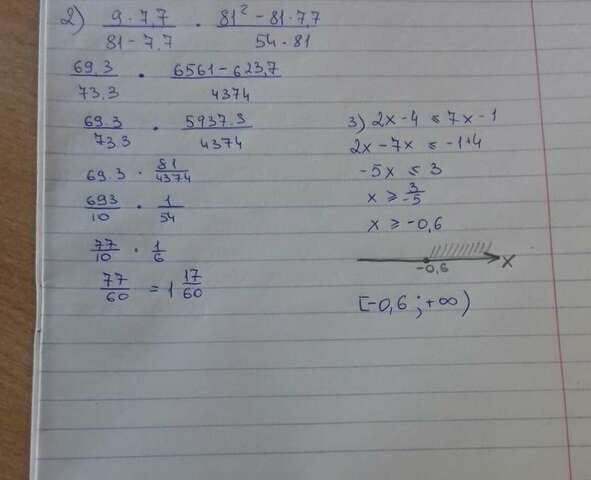 2) (9 · 7,7)/(81 - 7,7) · (81² - 81 · 7,7)/(54 · 81)
69.3/73.3 · (6561 - 623,7)/4374
69.3/73.3 · 5937.3/4374
69.3 · 81/4374
693/10 · 1/54
77/10 · 1/6
77/60 = 1 17/60
3) 2x - 4 ≤ 7x - 1
2x - 7x ≤ -1+4
-5x ≤ 3
x ≥ 3/-5
x ≥ -0,6
-0,6 x
[-0,6 ; +∞)